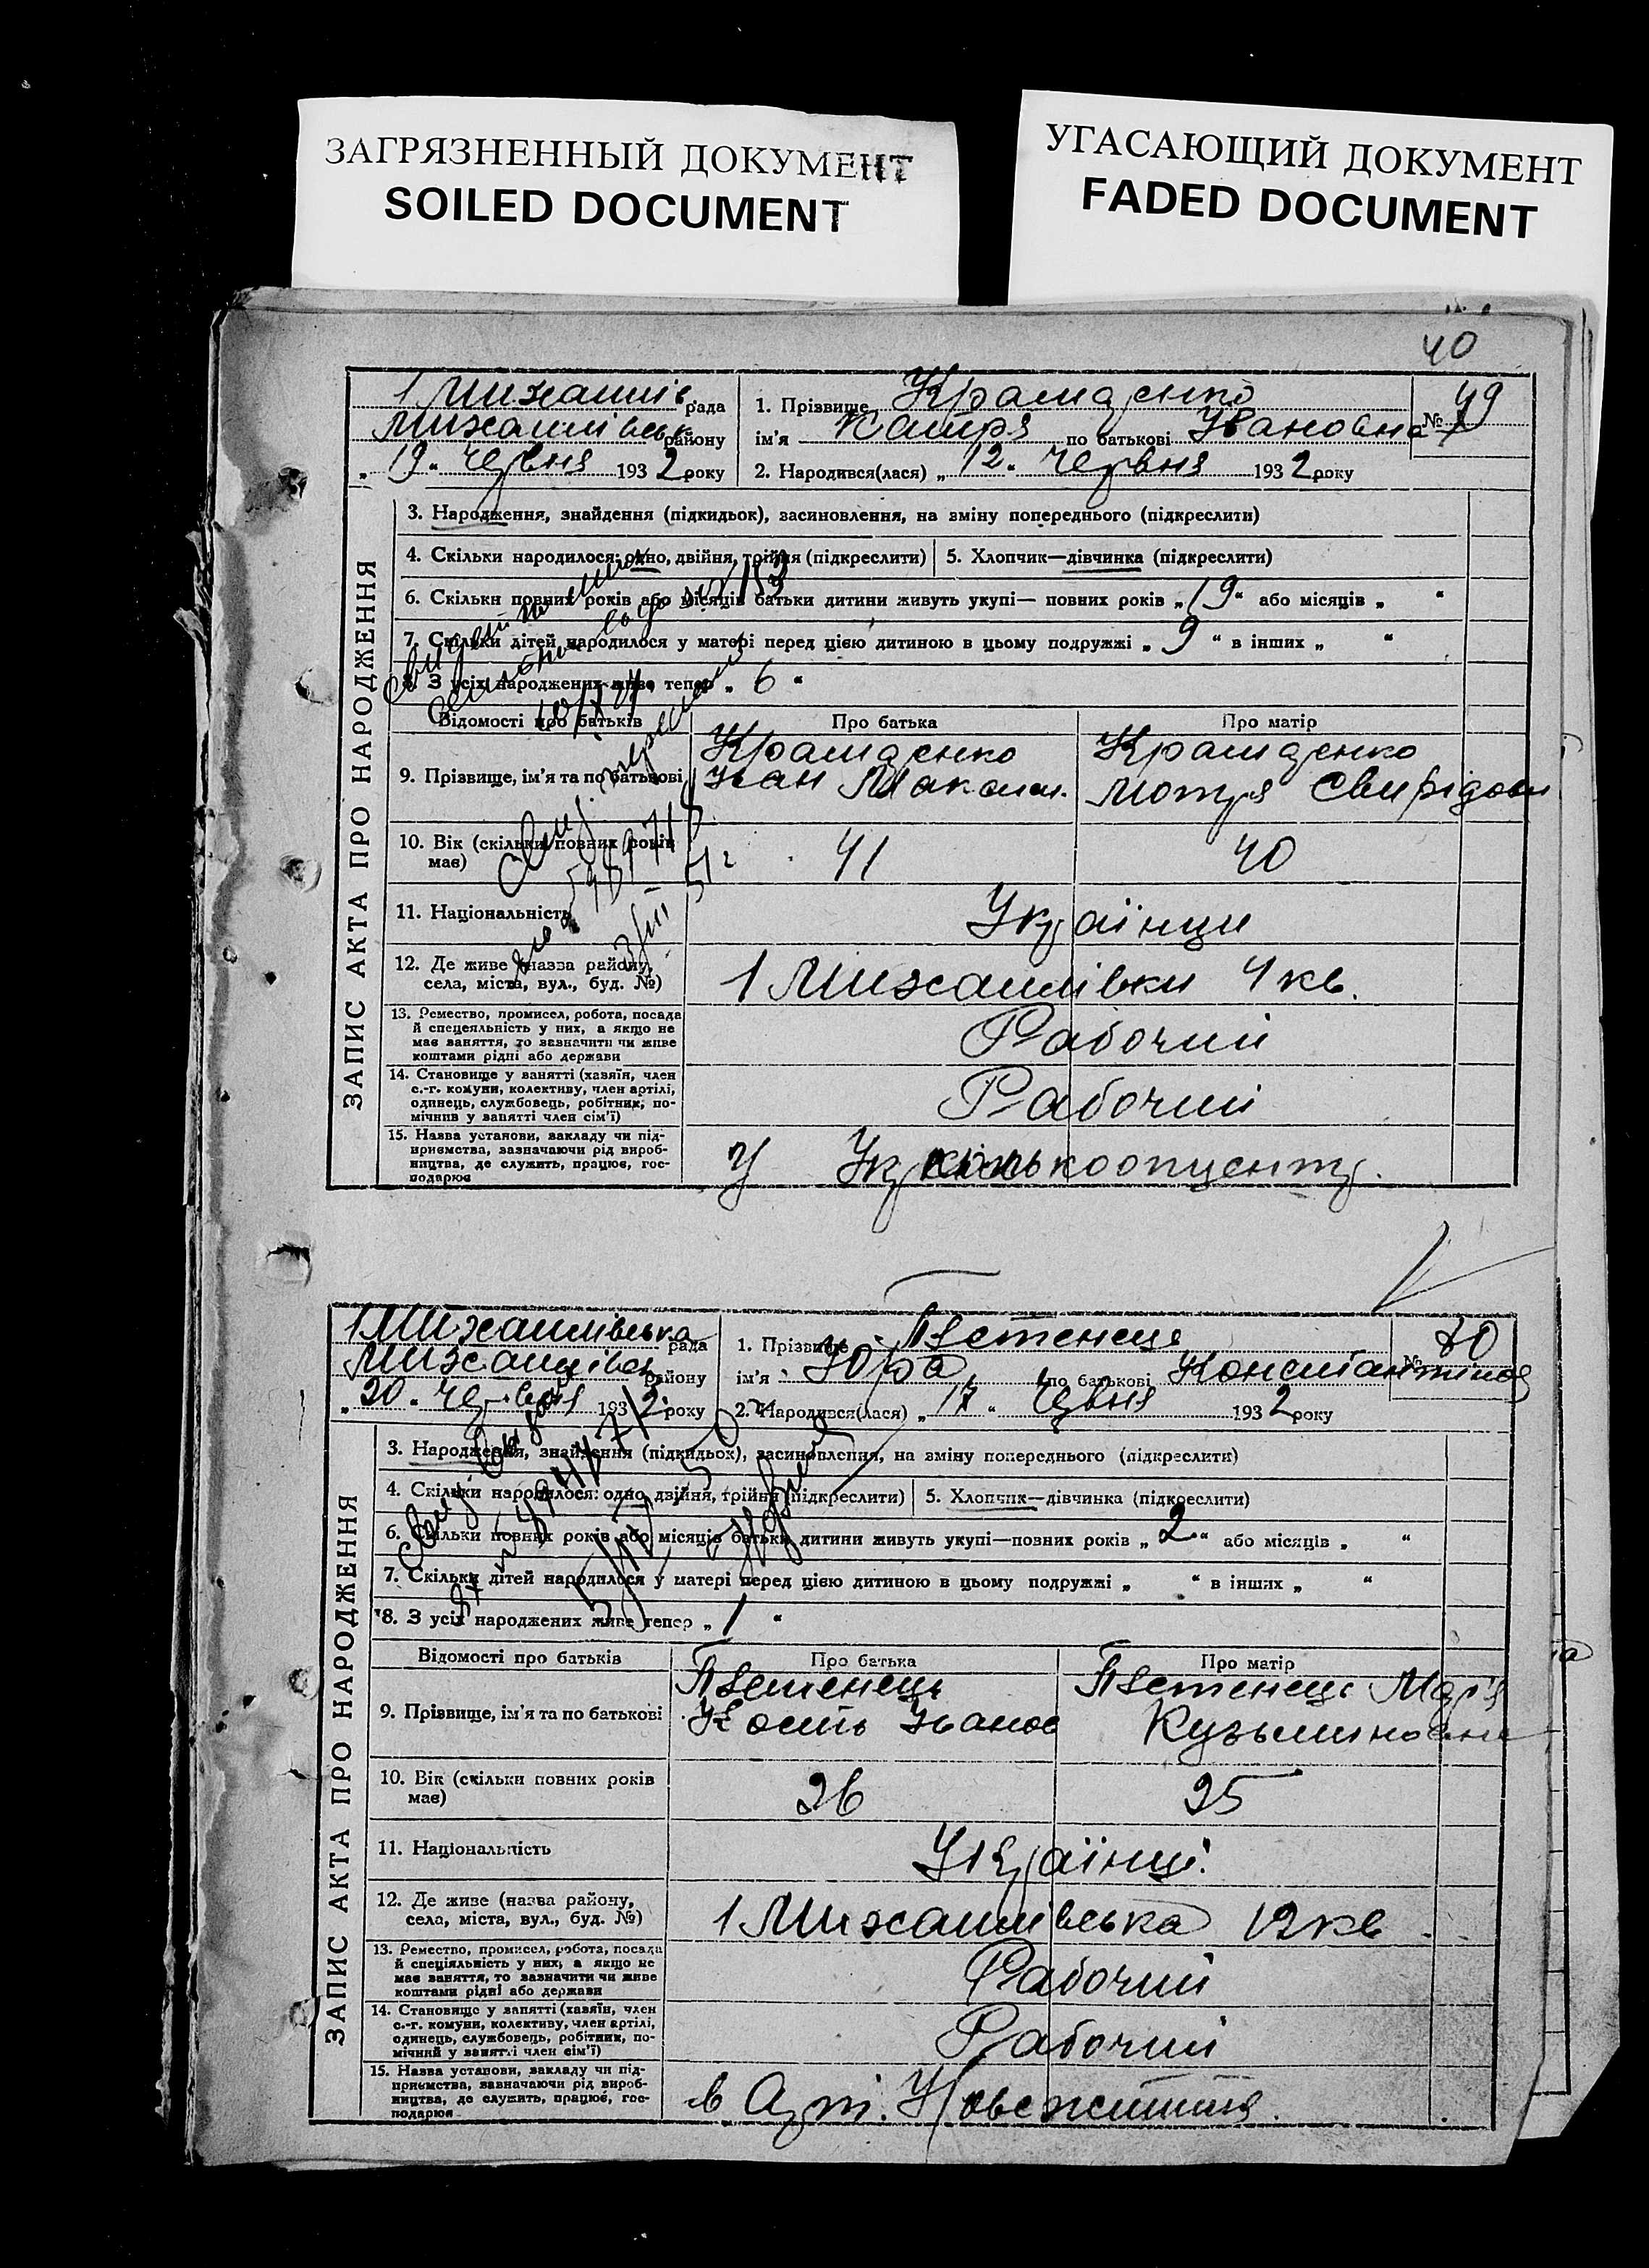 ЗАГРЯЗНЕННЫЙ ДОКУМЕНТ
SOILED DOCUMENT
УГАСАЮЩИЙ ДОКУМЕНТ
FADED DOCUMENT
40
ЗАПИС АКТА ПРО НАРОДЖЕННЯ
1 Михайлів. рада
Михайлівськ району
„19" червня 1932 року
1. Прізвище
ім'я Катря по батькові Івановна
2. Народився(лася) „12" червня 1932 року
№ 49
3. Народження, знайдення (підкидьок), засиновлення, на зміну попереднього (підкреслити)
4. Скільки народилося: одно, двійня, трійня (підкреслити)
5. Хлопчик—дівчинка (підкреслити)
6. Скільки повних років або місяців батьки дитини живуть укупі— повних років „19" або місяців „ "
7. Скільки дітей народилося у матері перед цією дитиною в цьому подружжі „9" в інших „ "
8. З усіх народжених живе тепер „6"
Відомості про батьків
Про батька
Про матір
9. Прізвище, ім'я та по батькові
Іван Максим.
Мотря Свирідовн
10. Вік (скільки повних років має)
41
40
11. Національність
Українци
12. Де живе (назва району, села, міста, вул., буд. №)
1 Михайлівки 4 кв.
13. Ремество, промисел, робота, посада й спецеяльність у них, а якщо не має заняття, то зазначити чи живе коштами рідні або держави
Рабочий
14. Становище у занятті (хазяїн, член с.-г. комуни, колективу, член артілі, одинець, службовець, робітник, помічник у занятті член сім'ї)
Рабочий
15. Назва установи, закладу чи підприємства, зазначаючи рід виробництва, де служить, працює, господарює
У
ЗАПИС АКТА ПРО НАРОДЖЕННЯ
1 Михайлівська рада
Михайлівськ району
„20" червня 1932 року
1. Прізвище
ім'я Юра по батькові Константінов
2. Народився(лася) „17" червня 1932 року
3. Народження, знайдення (підкидьок), засиновлення, на зміну попереднього (підкреслити)
4. Скільки народилося: одно, двійня, трійня (підкреслити)
5. Хлопчик—дівчинка (підкреслити)
6. Скільки повних років або місяців батьки дитини живуть укупі—повних років „2" або місяців „ "
7. Скільки дітей народилося у матері перед цією дитиною в цьому подружжі „ " в інших „ "
8. З усіх народжених живе тепер „1"
Відомості про батьків
Про батька
Про матір
9. Прізвище, ім'я та по батькові
Кость Іванов
Мар'я
Кузьминовна
10. Вік (скільки повних років має)
26
25
11. Національність
Українці
12. Де живе (назва району, села, міста, вул., буд. №)
1 Михайлівська 12 кв
13. Ремество, промисел, робота, посада й спеціяльність у них, а якщо не має заняття, то зазначити чи живе коштами рідні або держави
Рабочий
14. Становище у занятті (хазяїн, член с.-г. комуни, колективу, член артілі, одинець, службовець, робітник, помічний у занятті член сім'ї)
Рабочий
15. Назва установи, закладу чи підприємства, зазначаючи рід виробництва, де служить, працює, господарює
в Арт. Новежиття